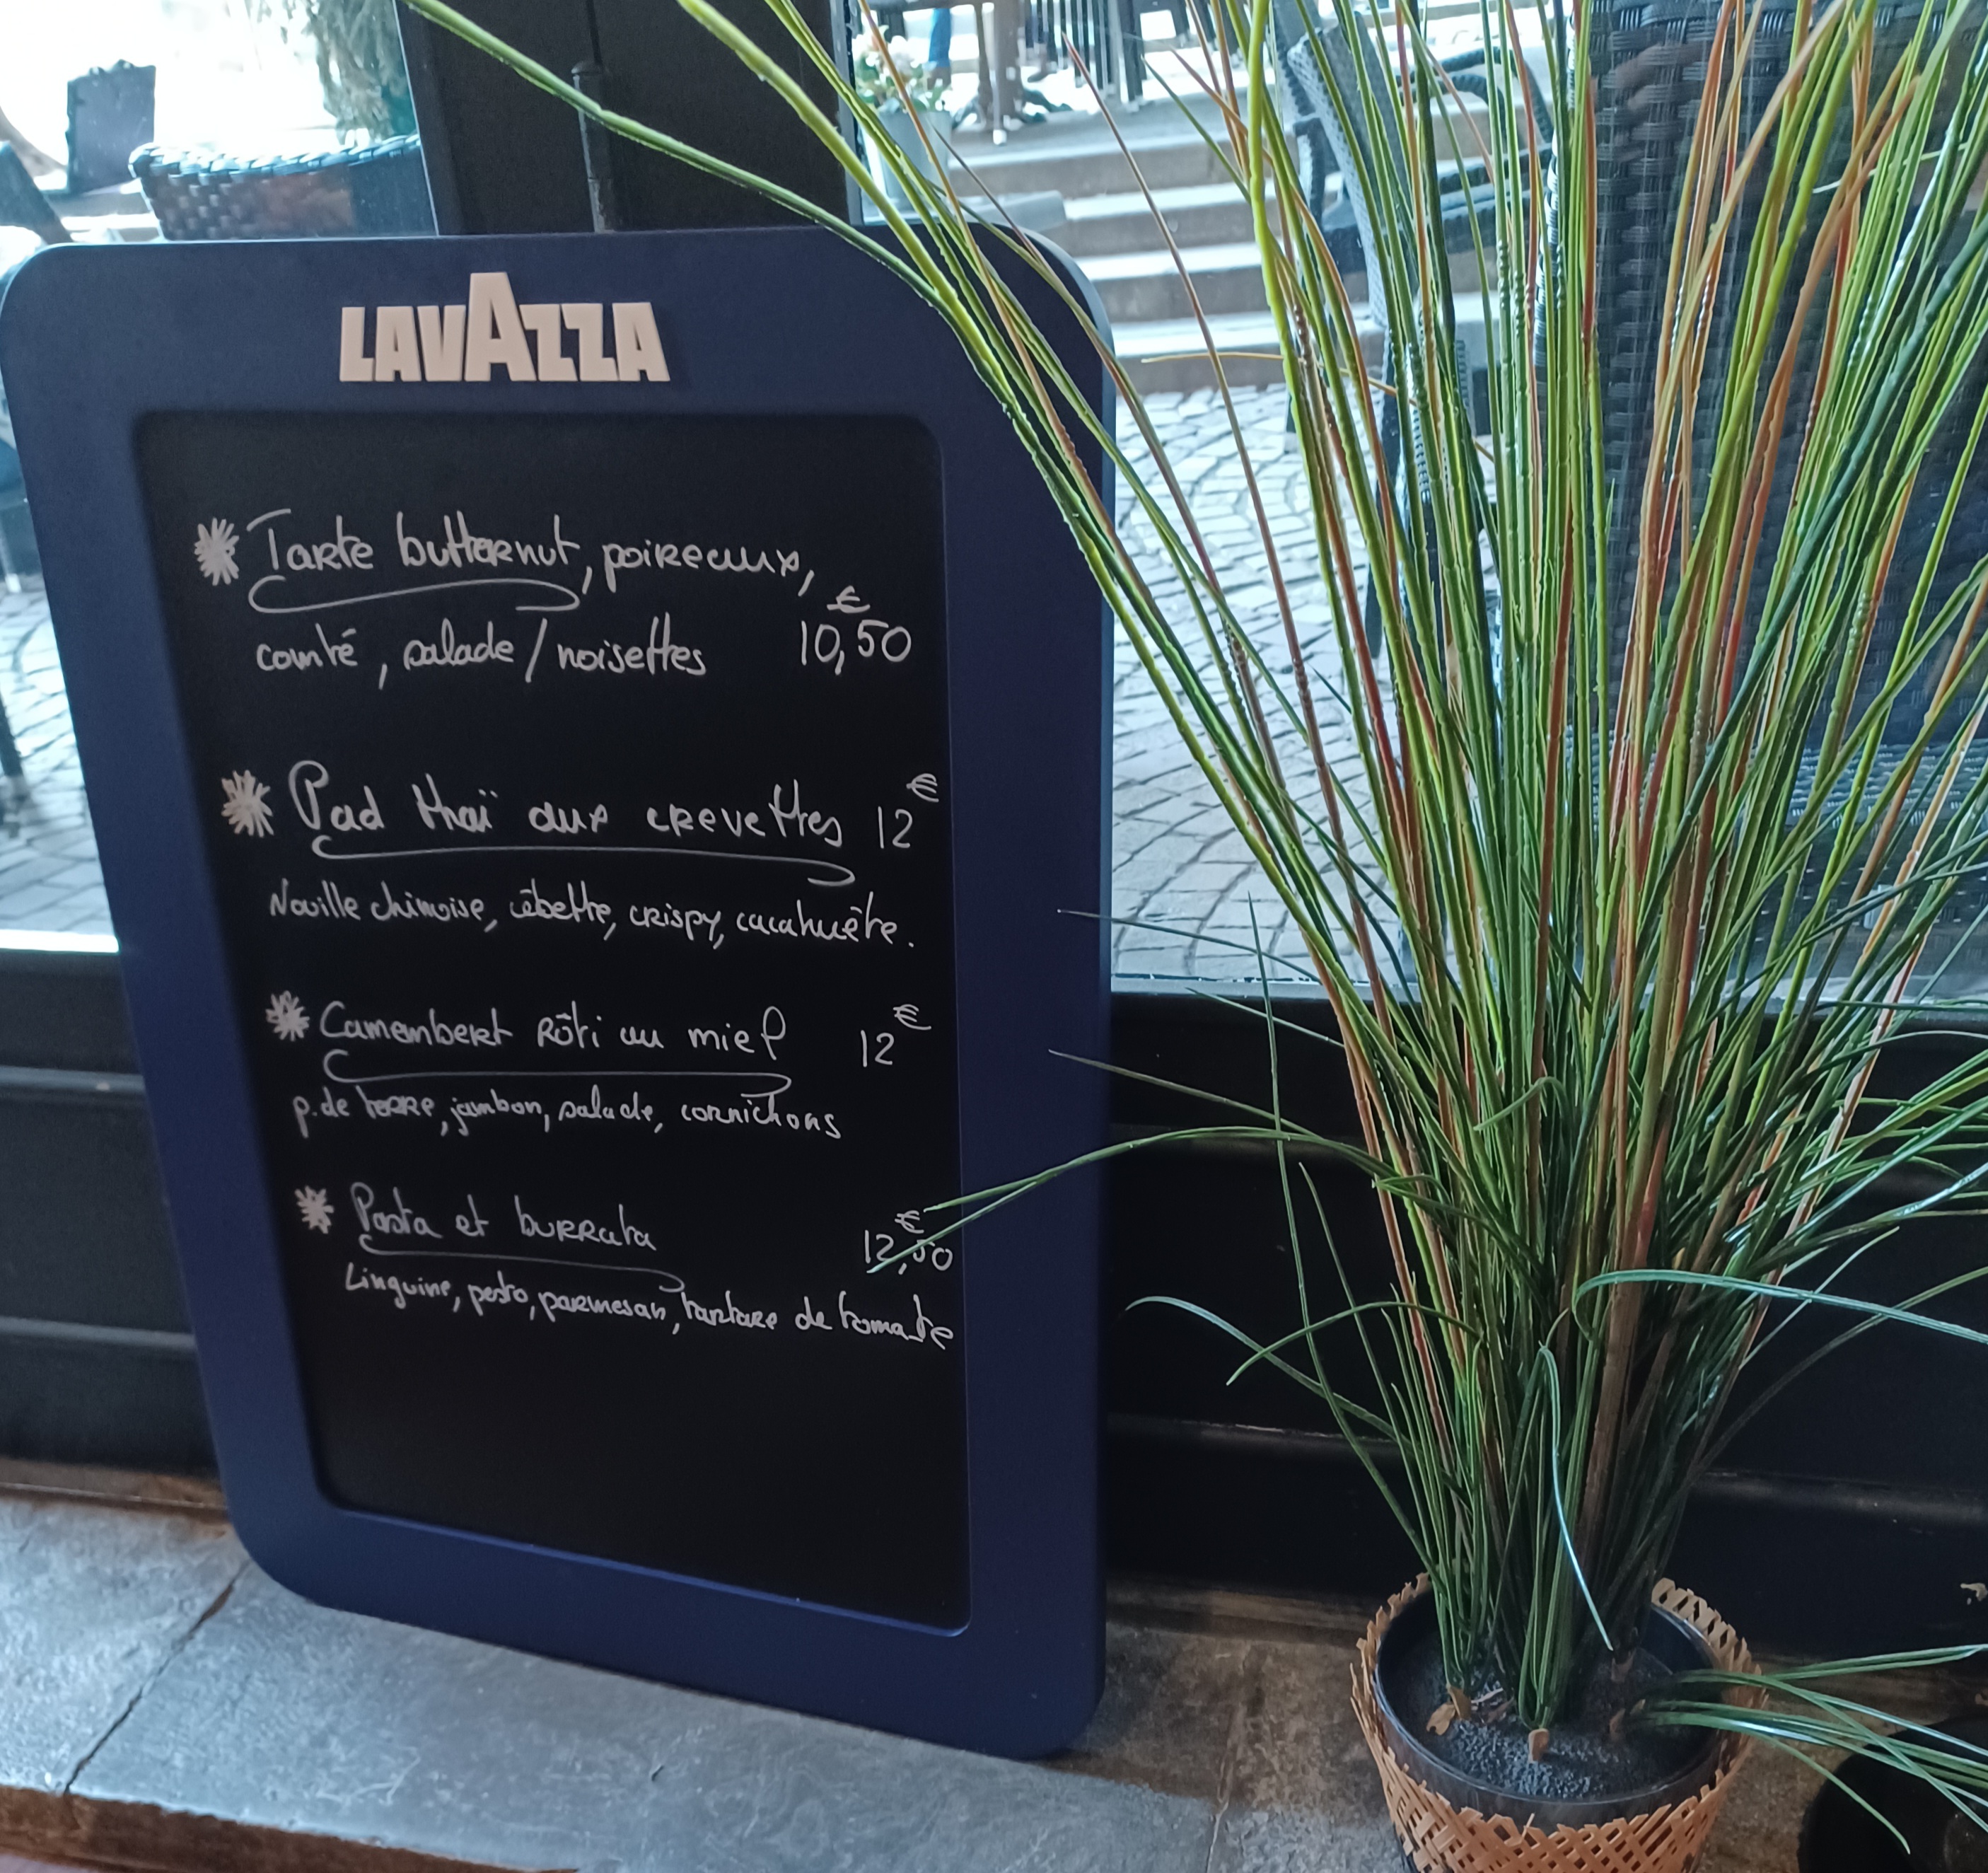 LAVAZZA
Tarte butternut, poireaux,
comté, salade/noisettes 10,50€
Pad thaï aux crevettes 12€
Nouille chinoise, cébette, crispy, cacahuète.
Camembert rôti au miel 12€
p.de terre, jambon, salade, cornichons
Pasta et burrata 12,50€
Linguine, pesto, parmesan, tartare de tomate